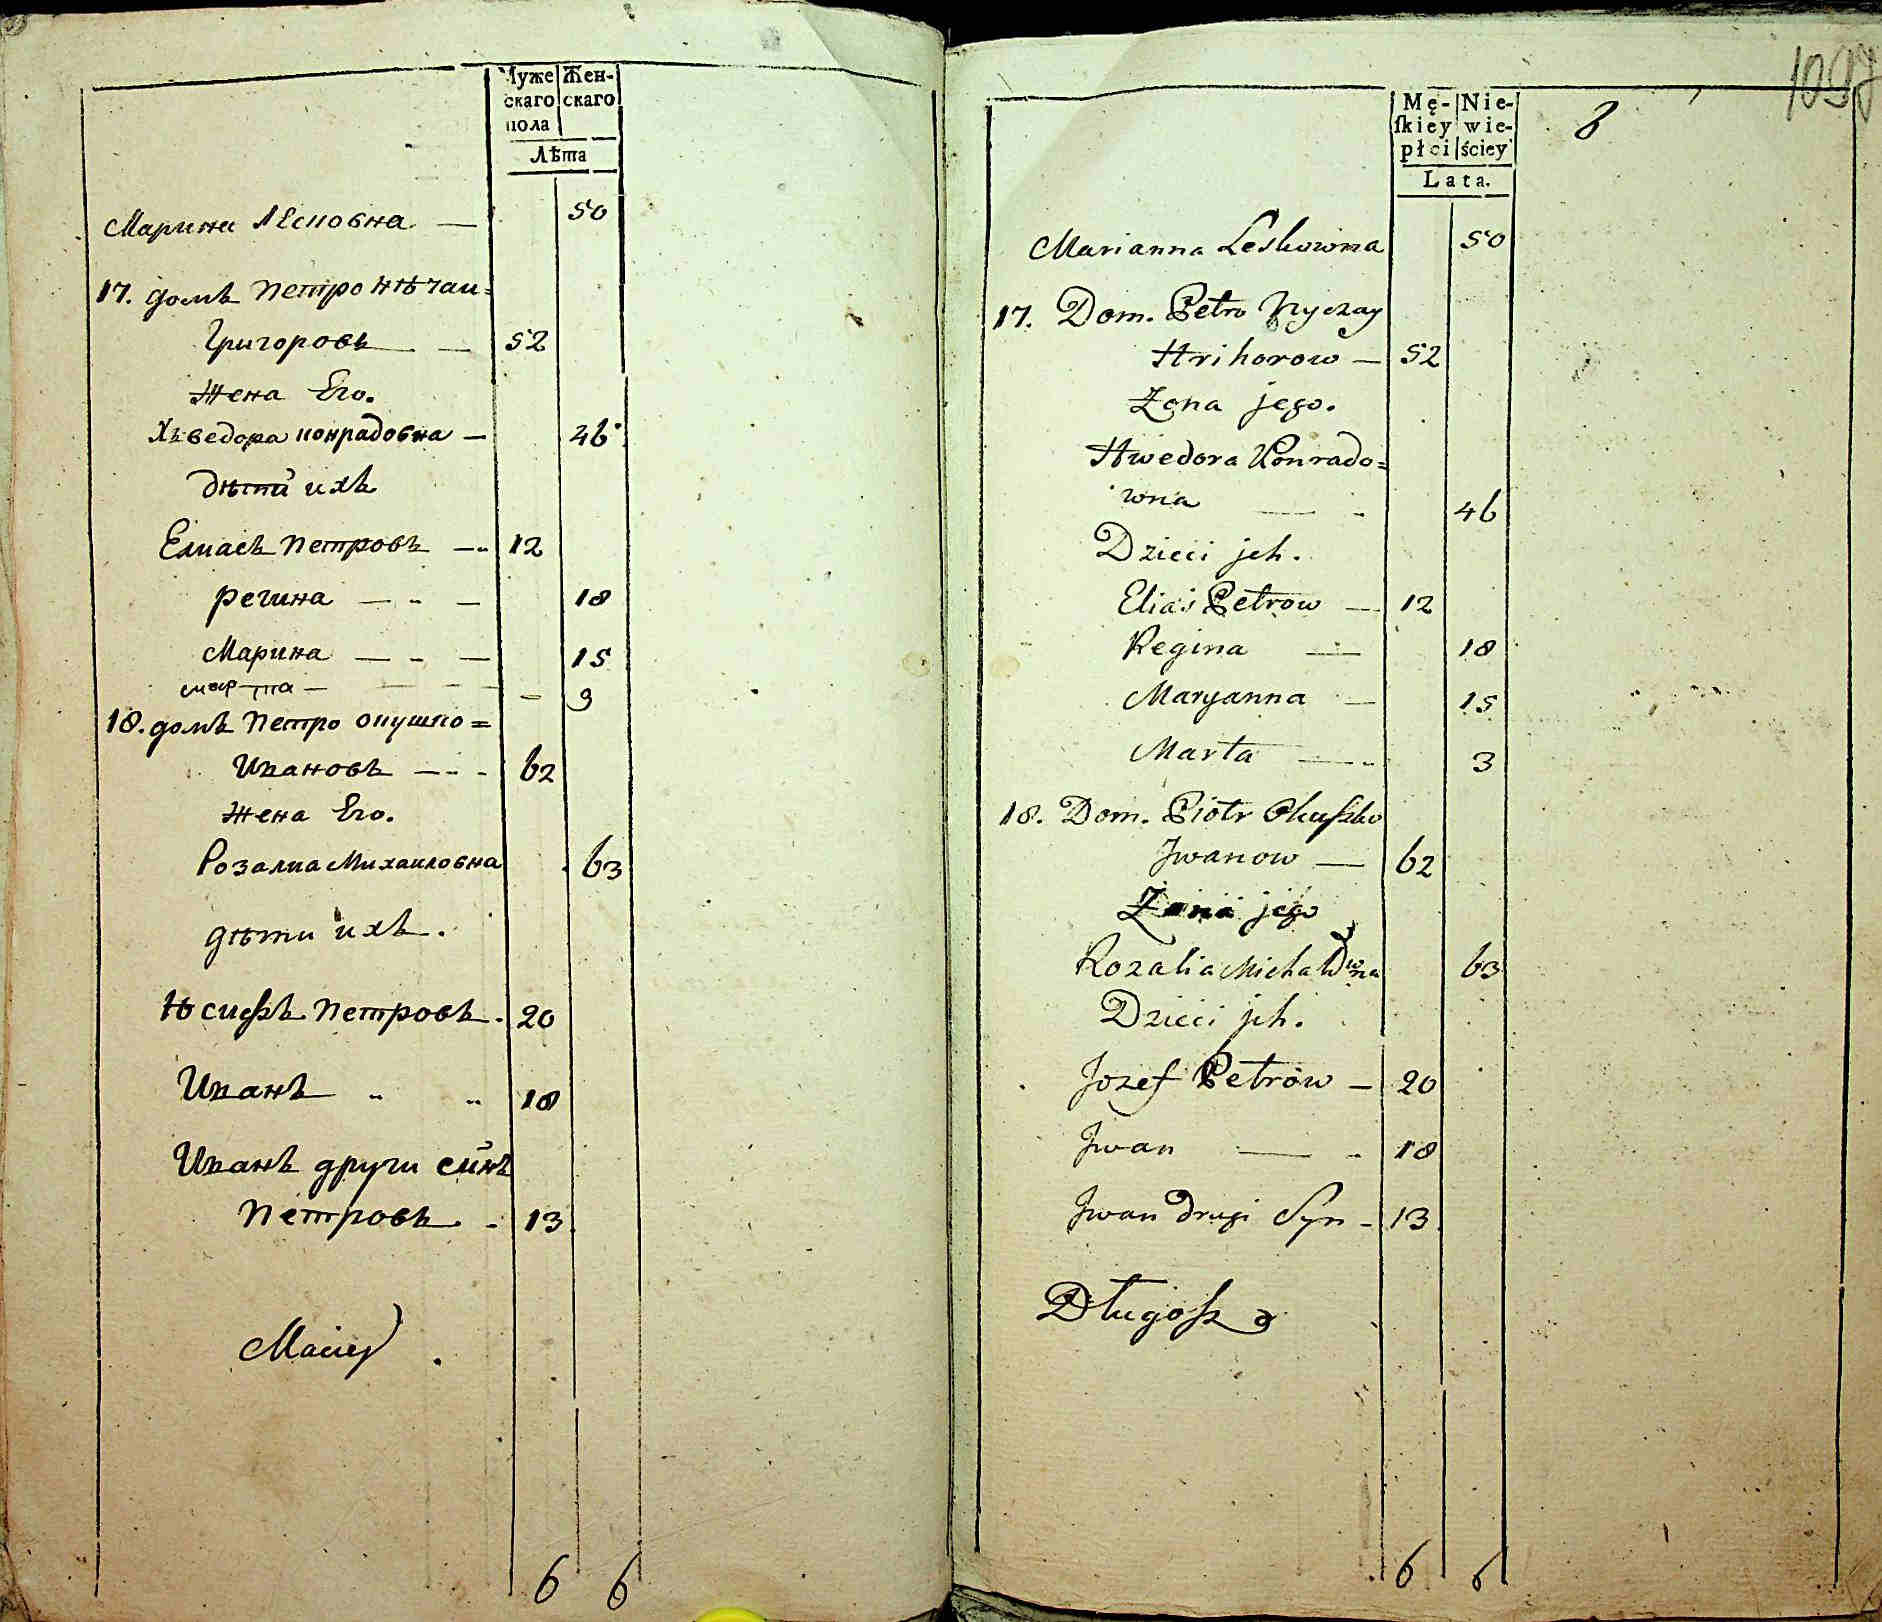 Муже Жен-
скаго скаго
пола
Лѣта
Марина Лесковна — 50
17. домъ Петро Нѣчаи=
Григоровъ — 52
Жена Его.
Хведора Конрадовна — 46
дѣти ихъ
Елиасъ Петровъ — 12
Регина — - — 18
Марина — - — 15
Марта — 9
18. домъ Петро Окушко=
Ивановъ — - - 62
Жена Его.
Розалиа Михаиловна 63
дѣти ихъ.
Юсифъ Петровъ. 20
Иванъ 18
Иванъ други синъ
Петровъ. - 13
Maciey
6 6
1097
8
Mę- Nie-
ſkiey wie-
płci ściey
Lata.
Marianna Leskowna 50
17. Dom. Petro Nyczay
Hrihorow — 52
Żona jego.
Hwedora Konrado=
wna — - 46
Dzieci jch.
Eliaś Petrow — 12
Regina — 18
Maryanna — 15
Marta — - 3
18. Dom. Piotr Okuſzko
Jwanow — 62
Żona jego
Rozalia Michałowna 63
Dzieci jch.
Jozef Petrow — 20
Jwan — - 18
Jwan drugi Syn - 13
Długoſz
6 6